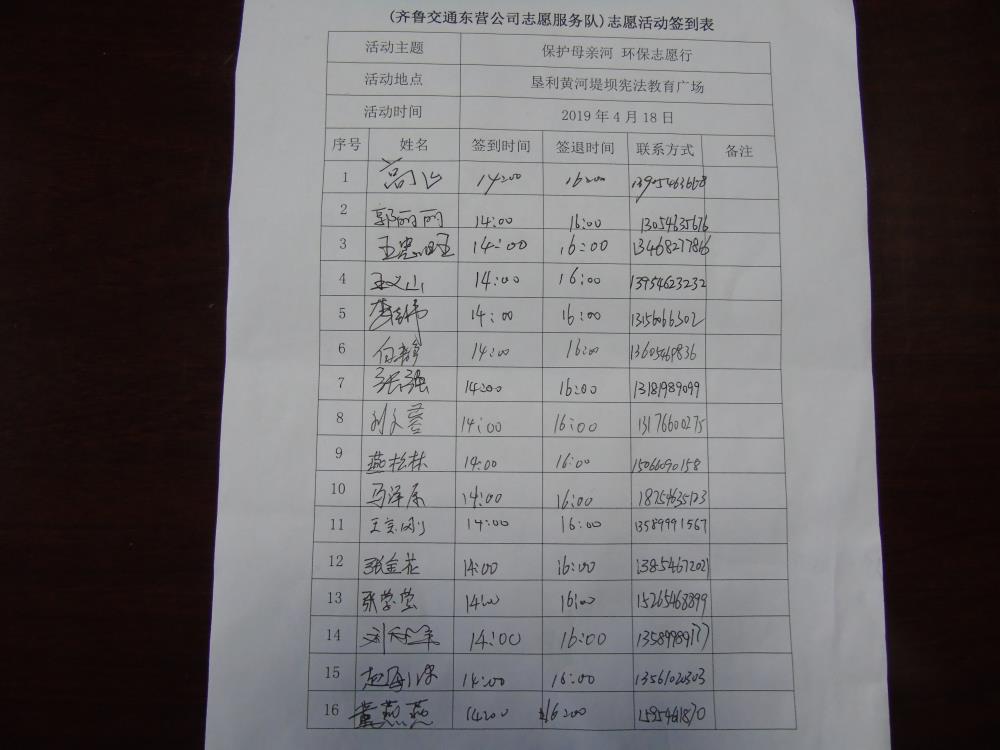 (齐鲁交通东营公司志愿服务队)志愿活动签到表
活动主题 保护母亲河 环保志愿行
活动地点 垦利黄河堤坝宪法教育广场
活动时间 2019 年 4 月 18 日
序号 姓名 签到时间 签退时间 联系方式 备注
1 14:00 16:00
2 郭丽丽 14:00 16:00 13054635676
3 14:00 16:00 13468277866
4 王义山 14:00 16:00 13954623232
5 14:00 16:00
6 白静 14:00 16:00
7 张强 14:00 16:00 13181989099
8 刘文蓉 14:00 16:00 13176600275
9 燕松林 14:00 16:00
10 马泽原 14:00 16:00
11 14:00 16:00 13589991567
12 张金花 14:00 16:00 13854672021
13 张学莹 14:00 16:00 15265468899
14 14:00 16:00
15 14:00 16:00
16 董燕燕 14:00 16:00